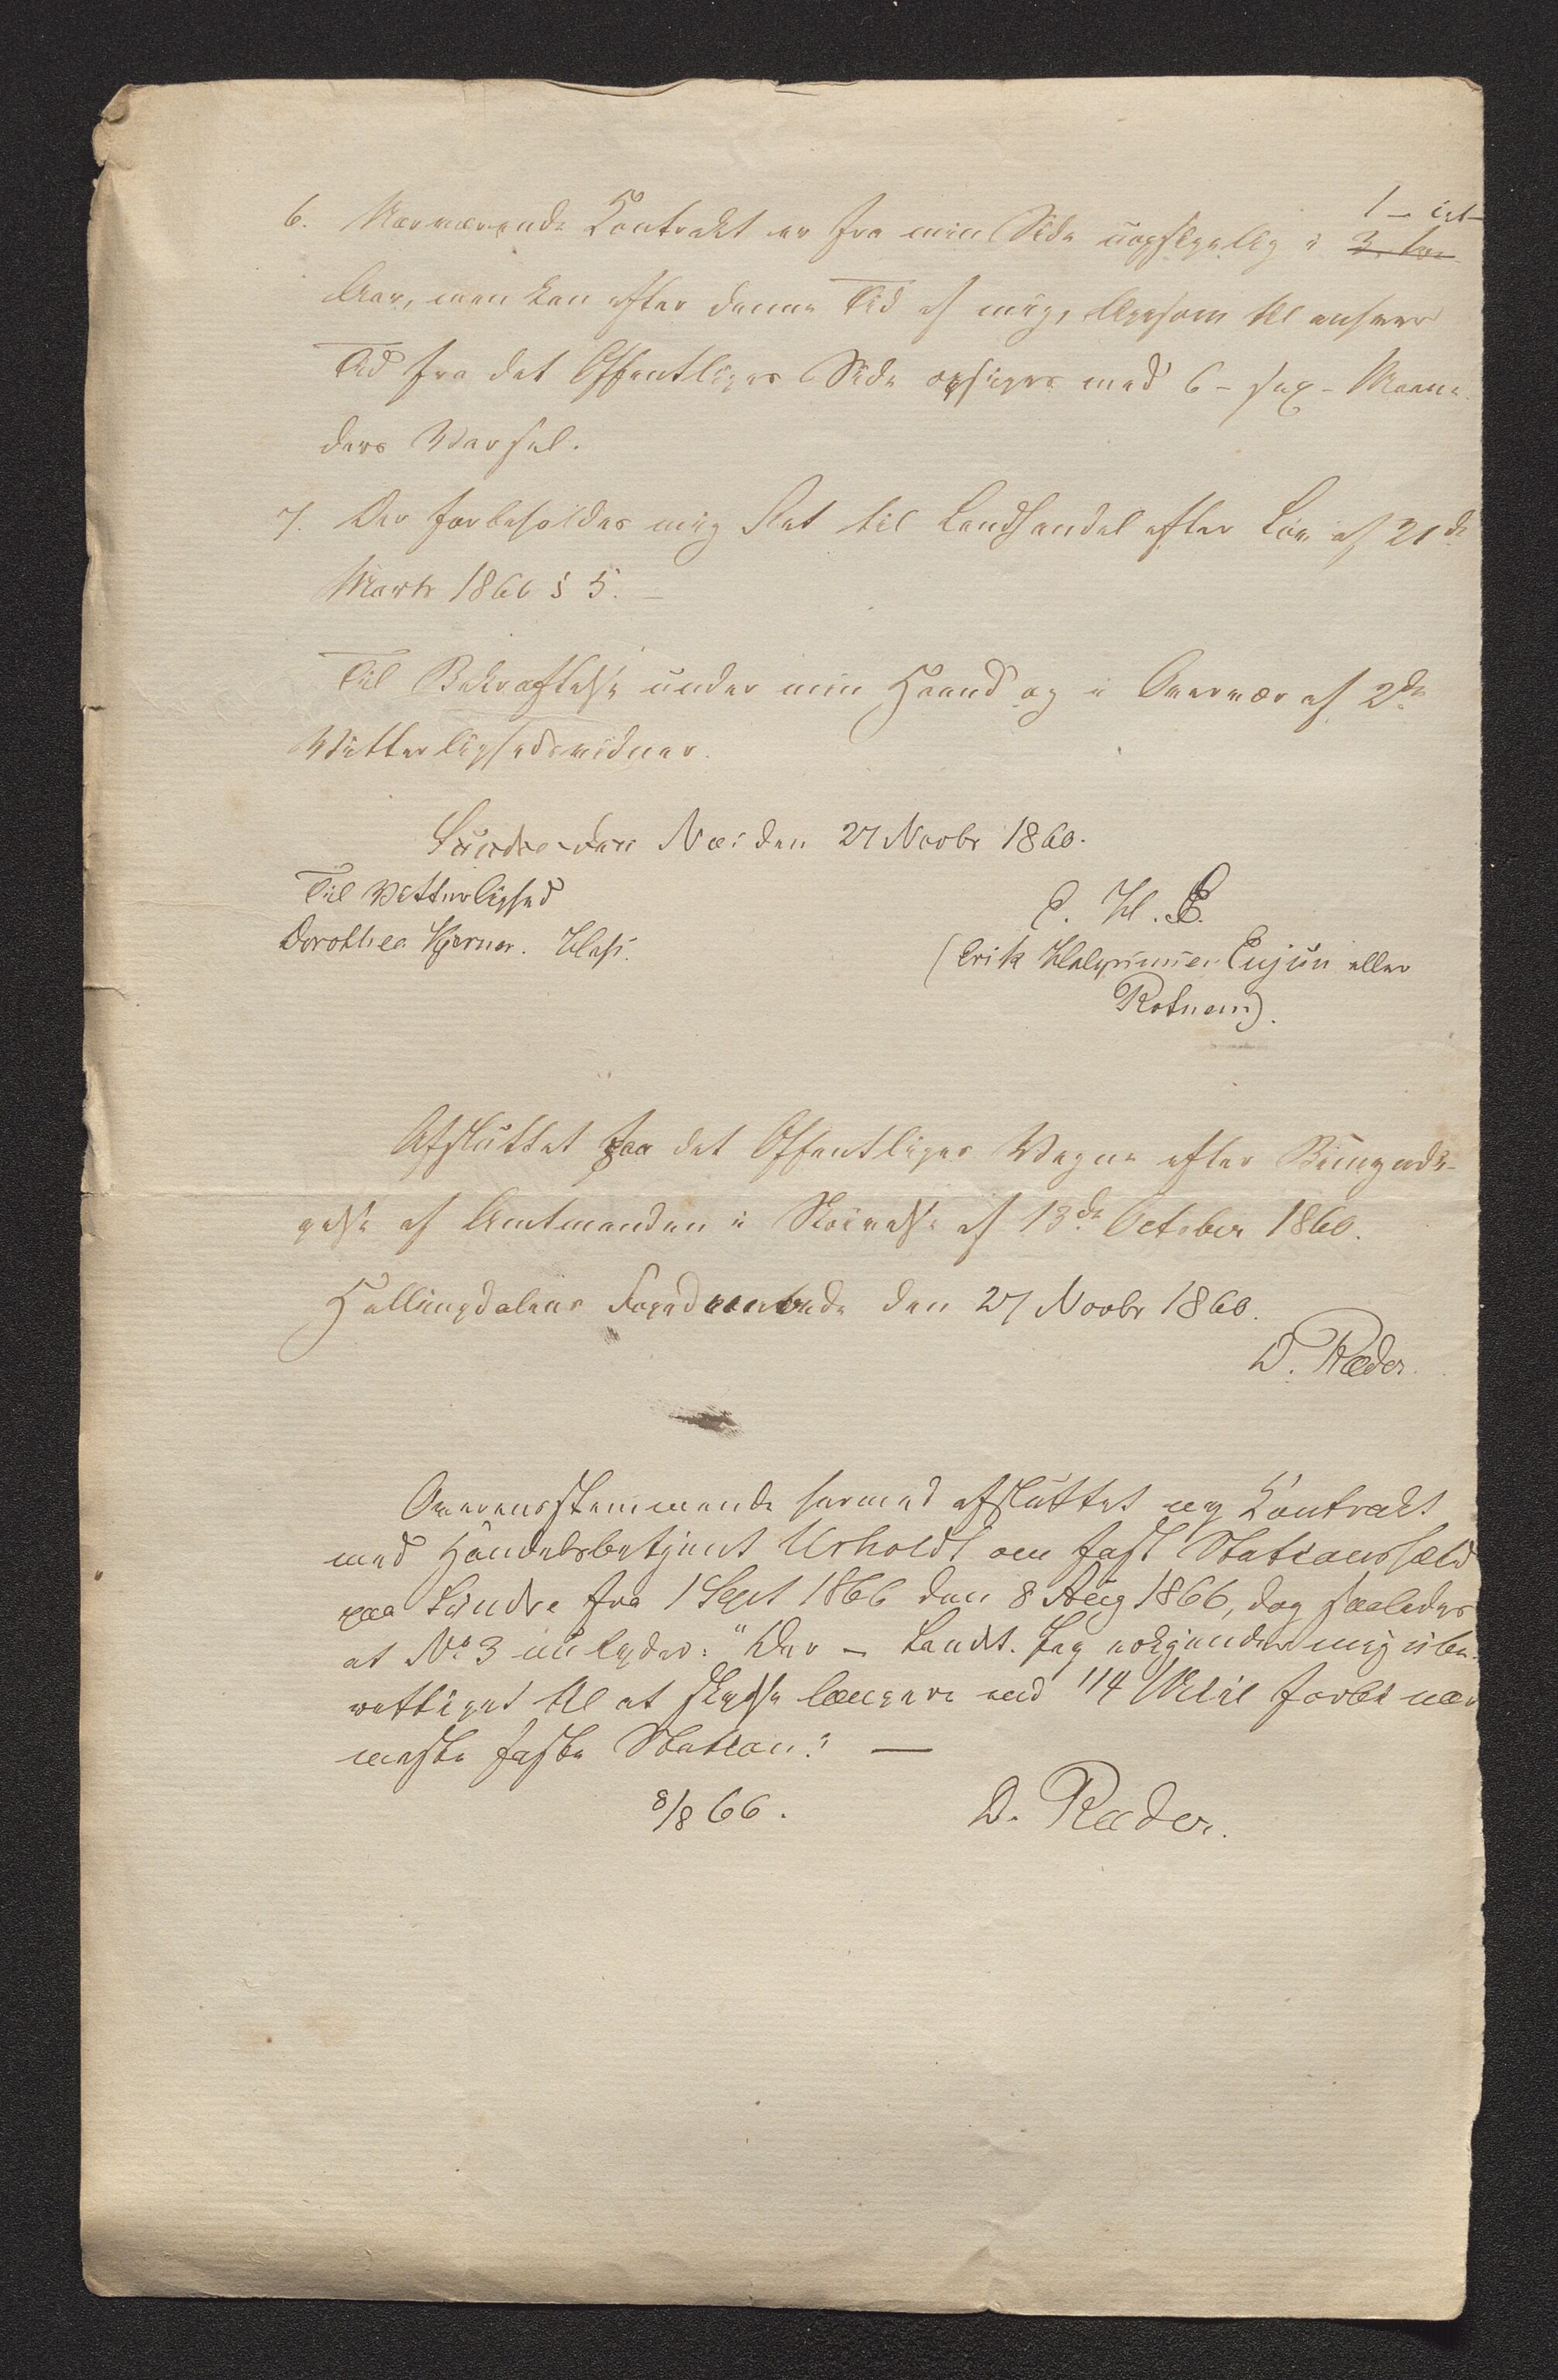 1 - et -
6. Nærværende Kontrakt er fra min Side uopsigelig i 3. tre
Aar, men kan efter denne Tid af mig, ligesom til enhver
Tid fra det Offentliges Side opsiges med 6 - sex - Maane
ders Varsel.
7. Der forbeholdes mig Ret til Landhandel efter Lov af 21de
Marts 1860 § 5. -
Til Bekræftelse under min Haand og i Overvær af 2de
Vitterlighedsvidner.
Sundre den 27 Novbr 1860.
Til Vitterlighed
Dorothea Kjerner.
E. H. E.
(Erik Halgrimsen Eujun eller
Rotnem).
Afsluttet paa det Offentliges Vegne efter Bemyndi-
gelse af Amtmanden i Skrivelse af 13de October 1860.
Hallingdalens Fogdembede den 27 Novbr 1860.
D. Ræder.
Overensstemmende hermed afsluttet ny Kontrakt
med Handelsbetjent Urholdt om fast Stationshold
paa Sundre fra 1 Sept 1866 den 8 Aug 1866, dog saaledes
at No 3 nu lyder: "Der - Landt. Jeg erkjender mig ube-
rettiget til at skydse længere end 1/4 Miil forbi nær
meste faste Station." —
8/8 66.
D. Ræder.